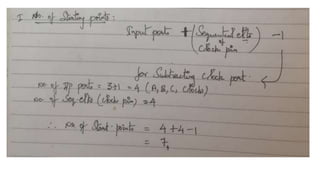 I No. of Starting points:
Input ports + (Sequential elts of clock pin) - 1
for Subtracting clock port.
no of I/P ports = 3+1 = 4 (A, B, C, Clock)
no of Seq elts (Clock pin) = 4
∴ No of Start points = 4+4-1
= 7,